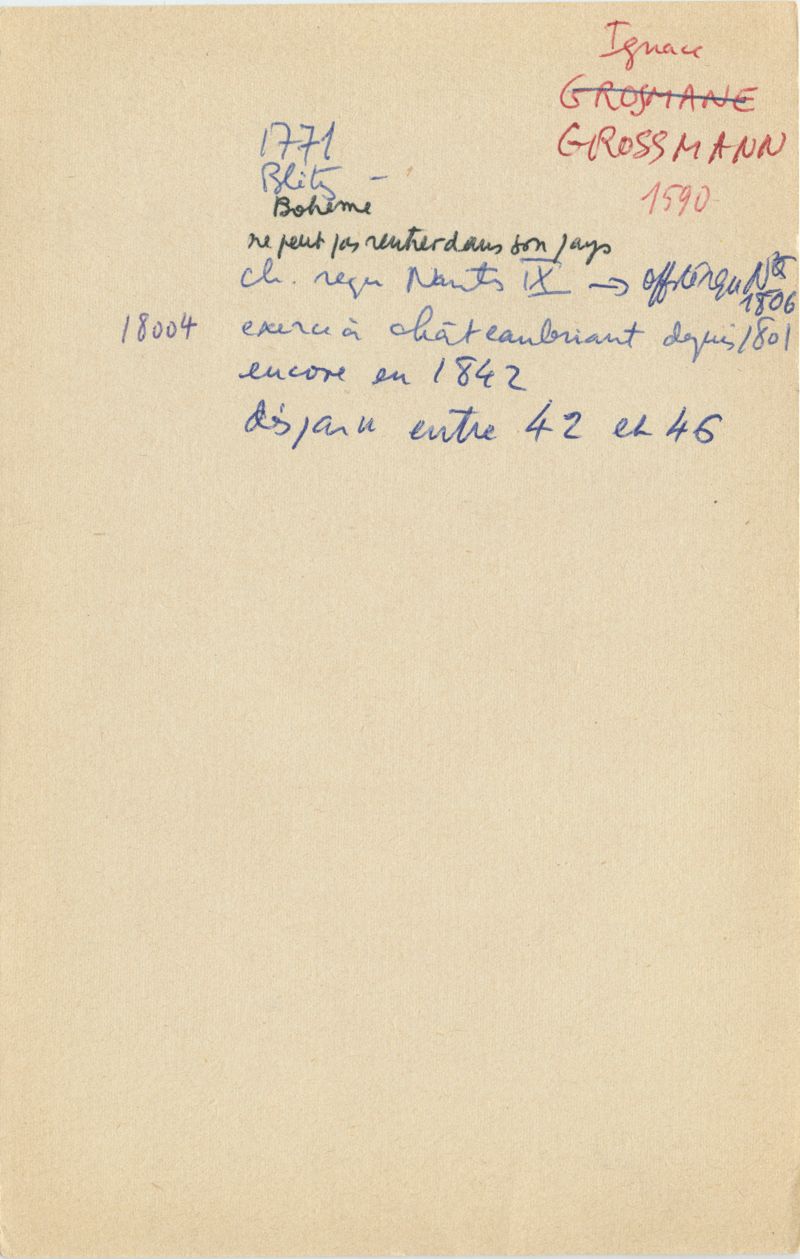 Ignace
GROSMANE
GROSSMANN
1590
1771
Blitz –
Bohème
ne peut pas rentrer dans son pays
ch. reçu Nantes IX → off. reçu Nts
1806
18004 exerce à châteaubriant depuis 1801
encore en 1842
disparu entre 42 et 46